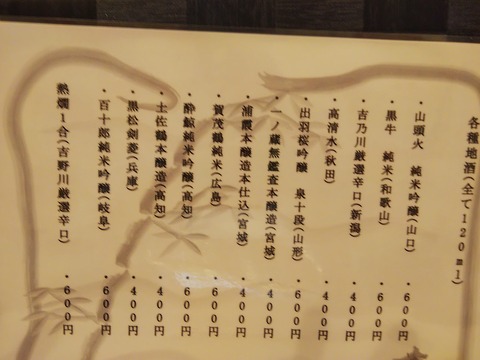 各種地酒（全て120ml）
・山頭火　純米吟醸（山口）　・600円
・黒牛　純米（和歌山）　・600円
・吉乃川厳選辛口（新潟）　・400円
・高清水（秋田）　・400円
・出羽桜吟醸　泉十段（山形）　・600円
・一ノ蔵無鑑査本醸造（宮城）　・400円
・浦霞本醸造本仕込（宮城）　・400円
・賀茂鶴純米（広島）　・500円
・酔鯨純米吟醸（高知）　・600円
・土佐鶴本醸造（高知）　・400円
・黒松剣菱（兵庫）　・400円
・百十郎純米吟醸（岐阜）　・600円
熱燗1合（吉野川厳選辛口）　・600円